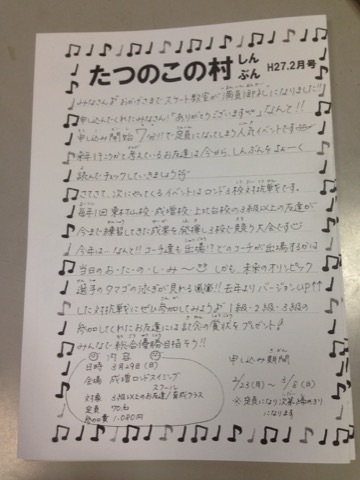 たつのこの村 しんぶん H27.2月号
みなさんのおかげさまでスケート教室が満員御礼になりました!!
申し込んでくれたみなさん!"ありがとうございます" なんと!!
申し込み開始7分!!で定員になってしまう人気イベントです
来年行こうかと考えているお友達は今から、しんぶんをよ〜く
読んでチェックしていきましょう
さてさて、次にやってくるイベントはロンド3校対抗戦です。
毎年1回 東村山校・成増校・上北台校の3級以上の友達が
今まで練習してきた成果を発揮し3校で競う大会です
今年は…なんと!!コーチ達も出場!?どのコーチが出場するかは
当日のお・た・の・し・み〜 しかも、未来のオリンピック
選手のタマゴの泳ぎが見れる 去年よりバージョンUP↑↑
した対抗戦にぜひ参加してみよう♪ 1級・2級・3級の
参加してくれたお友達には記念の賞状をプレゼント♪
みんなで総合優勝目指そう!!
内容
日時 3月29日(日)
会場 成増ロンドスイミングスクール
対象 3級以上のお友達/育成クラス
定員 70名
参加費 1,080円
申し込み期間
2/23(月)〜3/8(日)
※定員になり次第締めきりになります